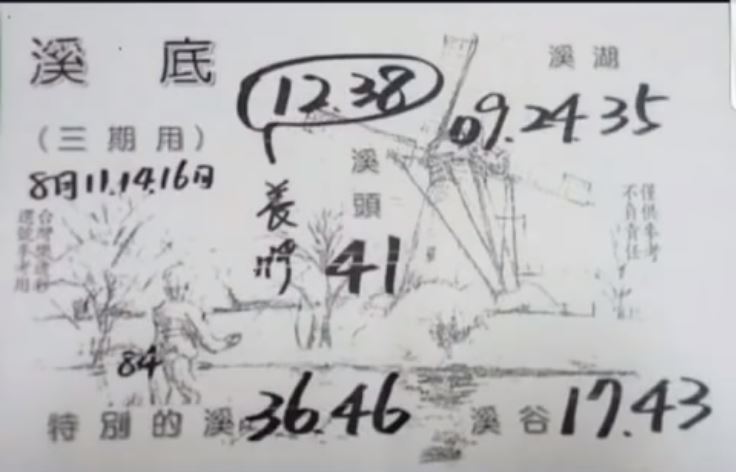 溪底
12.38
溪湖
09.24.35
（三期用）
8月11.14.16日
養牌
溪頭
41
僅供參考
不負責任
台灣樂透彩
選號參考用
84
特別的溪 36.46
溪谷 17.43